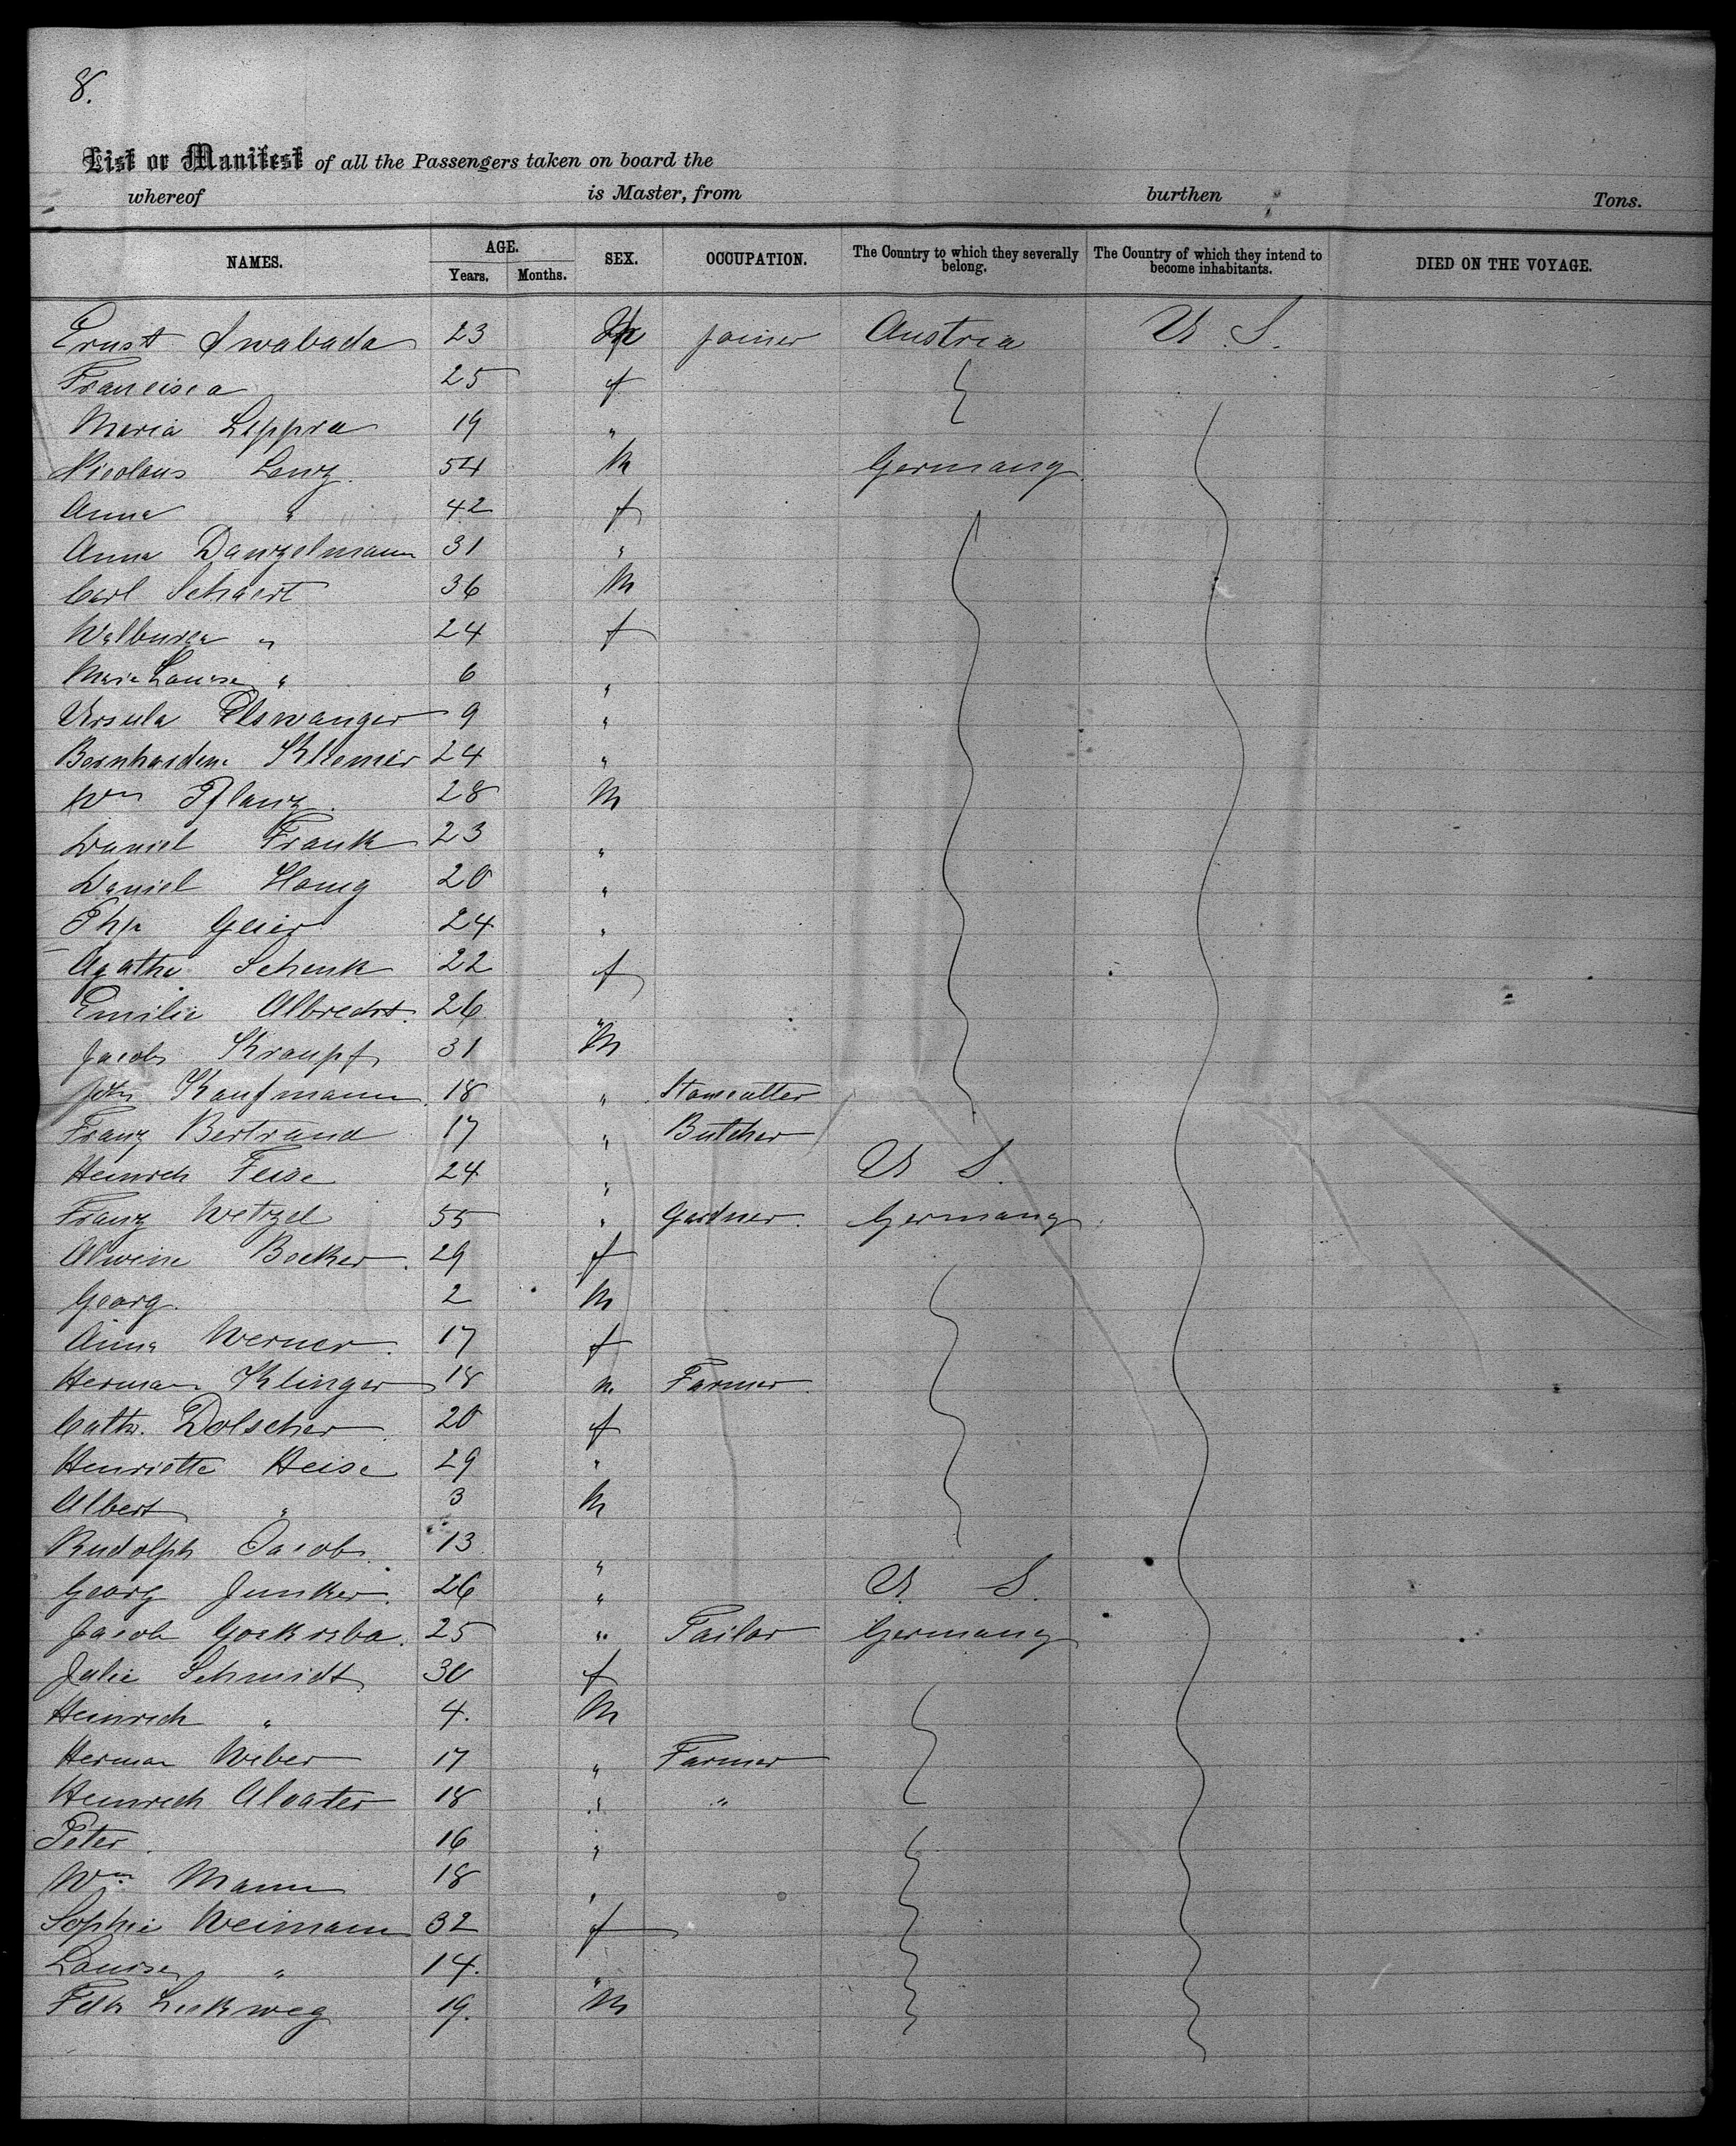 8.
List or Manifest of all the Passengers taken on board the
whereof is Master, from burthen Tons.
NAMES. AGE. Years. Months. SEX. OCCUPATION. The Country to which they severally belong. The Country of which they intend to become inhabitants. DIED ON THE VOYAGE.
Ernst Swabada 23 M joiner Austria U. S.
Francisca 25 f
Maria Lippra 19 "
Nicolaus Lenz. 54 M Germany
Anna " 42 f
Anna Danzelmann 31 "
Carl Schaert 36 M
Walburga " 24 f
Marie Louise " 6 "
Ursula Elswanger 9 "
Bernhardine Kliemer 24 "
Wm Pflanz. 28 M
Daniel Frank 23 "
Daniel Honig 20 "
Php Geier 24 "
Agathe Schenk 22 f
Emilie Albrecht. 26 "
Jacob Krampf 31 M
John Kaufmann. 18 " Stonecutter
Franz Bertrand 17 " Butcher
Heinrich Feise 24 " U S.
Franz Wetzel 55 " Gardner. Germany.
Alwine Becker. 29 f
Georg. 2 M
Anna Werner. 17 f
Herman Klinger 18 m Farmer.
Cath. Dolscher. 20 f
Henriette Heise 29 "
Albert " 3 M
Rudolph Jacobs. 13 "
Georg Junker. 26 " U. S.
Jacob 25 " Tailor Germany
Julie Schmidt 30 f
Heinrich " 4. M
Herman Weber 17 " Farmer
Heinrich Alvater 18 " "
Peter. 16 "
Wm. Mann 18 "
Sophie Weimann 32 f
Louise " 14. "
Leckweg 19. M